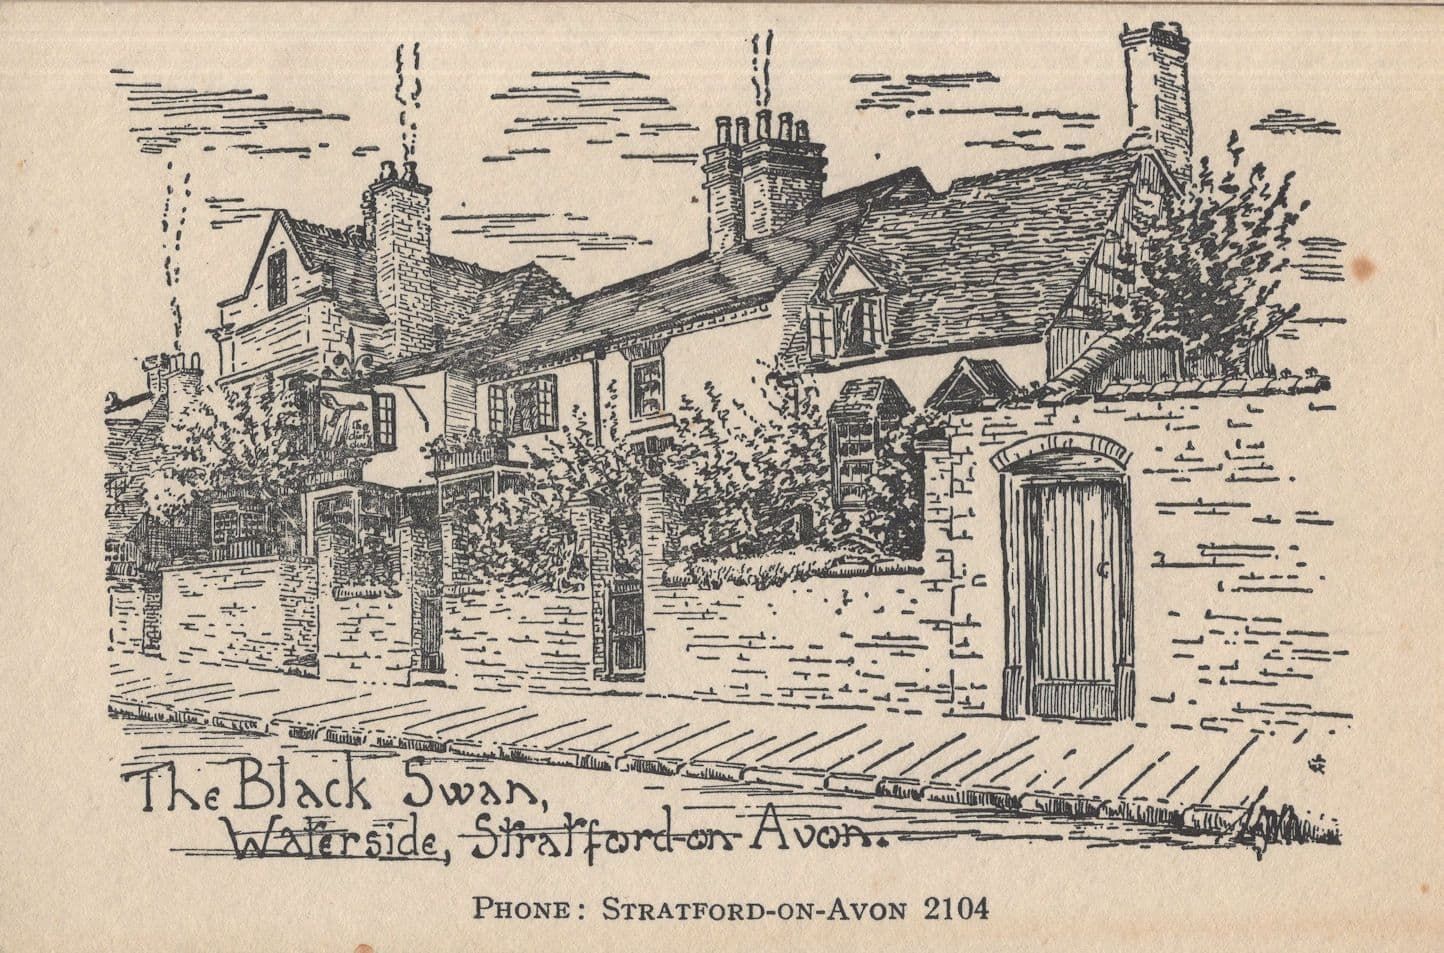 the
dirty
duck
The Black Swan,
Waterside, Stratford-on-Avon.
PHONE: STRATFORD-ON-AVON 2104